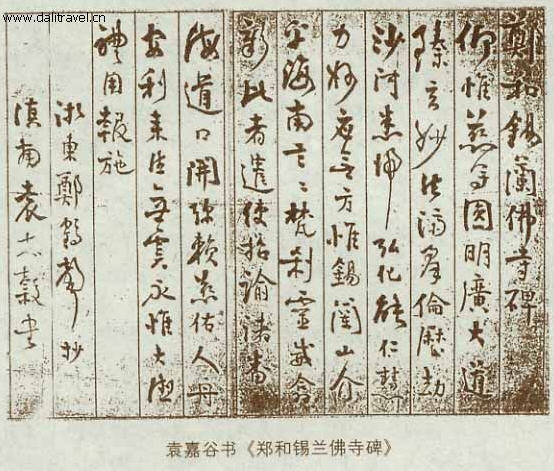 www.dalitravel.cn
鄭和錫蘭佛寺碑
仰惟慈尊圓明廣大道
臻玄妙法濟羣倫歷劫
沙河悉歸弘化能仁慧
力妙應無方惟錫蘭山介
乎海南言〻梵刹靈感翕
彰比者遣使詔諭諸番
海道口開深賴慈佑人舟
安利來往無虞永惟大德
禮用報施
浙東鄭鶴聲抄
滇南袁嘉穀書
袁嘉谷书《郑和锡兰佛寺碑》